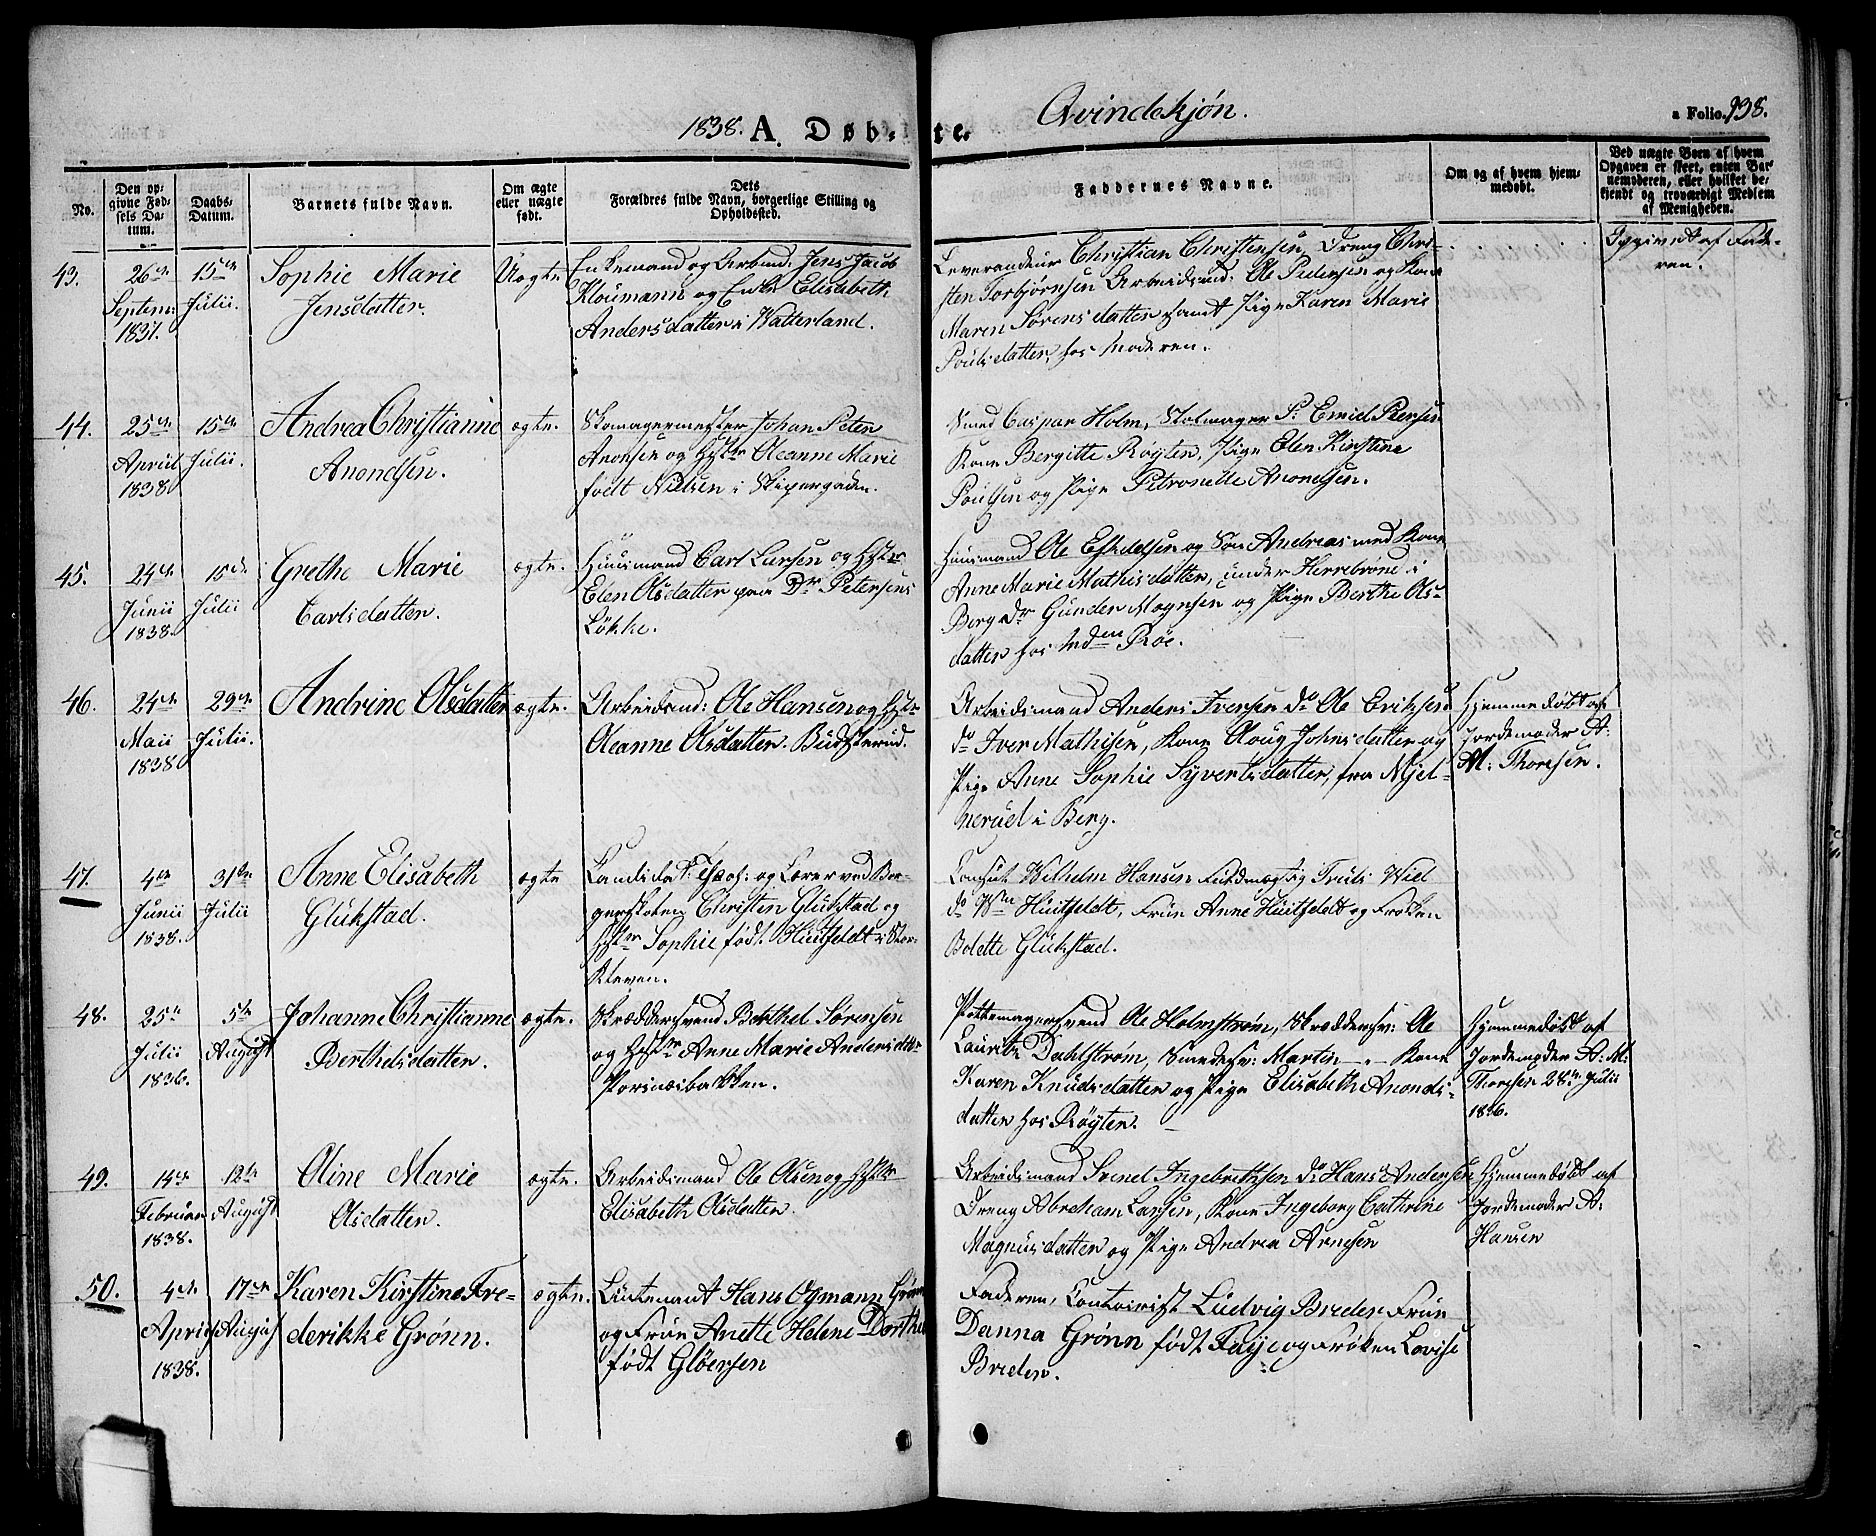 1838. A. Døb-te. Qvindekjøn. a Folio. 938.
No. Den opgivne Fødsels Datum. Daabs-Datum. Barnets fulde Navn. Om ægte eller uægte født. Dets Forældres fulde Navn, borgerlige Stilling og Opholdssted. Faddernes Navne. Om og af hvem hjemmedøbt. Ved uægte Børn af hvem Opgaven er skeet, enten Barnemoderen, eller hvilket bekjendt og troværdigt Medlem af Menigheden.
43. 26de Septemr 1837. 15de Julii. Sophie Marie
Jensdatter. Uægte.
Enkemand og Arbmd: Jens Jacob
Kloumann og Enke Elisabeth
Andersdatter i Watterland.
Leverandeur Christian Christensen, Dreng Chri-
sten Torbjørnsen Arbeidsmd: Ole Pedersen og Kone
Maren Sørensdatter samt Pige Karen Marie
Poulsdatter, hos Moderen.
Opgivet af Fade-
ren.
44. 25de April 1838. 15de Julii. Andrea Christianne
Anondsen. ægte.
Skomagermester Johan Peter
Anonsen og Hstr Oleanne Marie
født Nielsen i Skipergaden.
Smed Caspar Holm, Stolmager P. Emid Petersen
Kone Bergitte Røyter, Pige Elen Kirstine
Poulsen og Pige Petronelle Anondsen.
45. 24de Junii 1838. 15de Julii Grethe Marie
Carlsdatter. ægte.
Huusmand Carl Larsen og Hstr
Elen Olsdatter paa Dr Petersens
Løkke.
Huusmand Ole Eskelsen og Søn Andreas med Kone
Anne Marie Mathisdatter, under Herrebrøne i
Berg do Gunder Mognsen og Pige Berthe Ols-
datter hos Mdm Røe.
46. 24de Maii 1838 29de Julii. Andrine Olsdatter ægte.
Arbeidsmd: Ole Hansen og Hstr
Oleanne Olsdatter. Budsterud.
Arbeidsmand Anders Iversen do Ole Erichsen
do Iver Mathisen, Kone Aloug Johnsdatter og
Pige Anne Sophie Syvertsdatter, fra Mjel-
nerud i Berg.
Hjemmedøbt af
Jordemoder A:
M: Thoresen.
47. 4de Junii 1838. 31te Julii Anne Elisabeth
Glükstad. ægte
Candidat Theol: og Lærer ved Bor-
gerskolen Christen Glükstad og
Hstr Sophie født Huitfeldt i Stor-
kleven.
Consul Wilhelm Hansen Fuldmægtig Truls Wiel
do Wm Huitfeldt, Frue Anne Huitfeldt og Frøken
Bolette Glükstad.
48. 25de Julii 1836. 5te August Johanne Christianne
Berthelsdatter. ægte.
Skræddersvend Berthel Sørensen
og Hstr Anne Marie Andersdtr
Porsnæsbakken.
Pottemagersvend Ole Holmstrøm, Skræddersv: Ole
Lauritz Dahlstrøm, Smedesv: Martin — . — Kone
Karen Knudsdatter og Pige Elisabeth Anonds-
datter hos Røyter.
Hjemmedøbt af
Jordemoder A: M:
Thoresen 28de Julii
1836.
49. 14de Februar 1838. 12te August. Oline Marie
Olsdatter. ægte.
Arbeidsmand Ole Olsen og Hstr
Elisabeth Olsdatter.
Arbeidsmand Svend Ingebrethsen do Hans Andersen
Dreng Abraham Larsen, Kone Ingeborg Cathrine
Magnusdatter og Pige Andrea Arnesen
Hjemmedøbt af
Jordemoder A:
Hansen
50. 4de April 1838. 17de August Karen Kirstine Fre-
derikke Grønn. ægte.
Lieutenant Hans Ogmann Grønn
og Frue Anette Helene Dorthea
født Gløersen
Faderen, Contoirist Ludvig Breder Frue
Danna Grønn født Faye og Frøken Lovise
Breder.